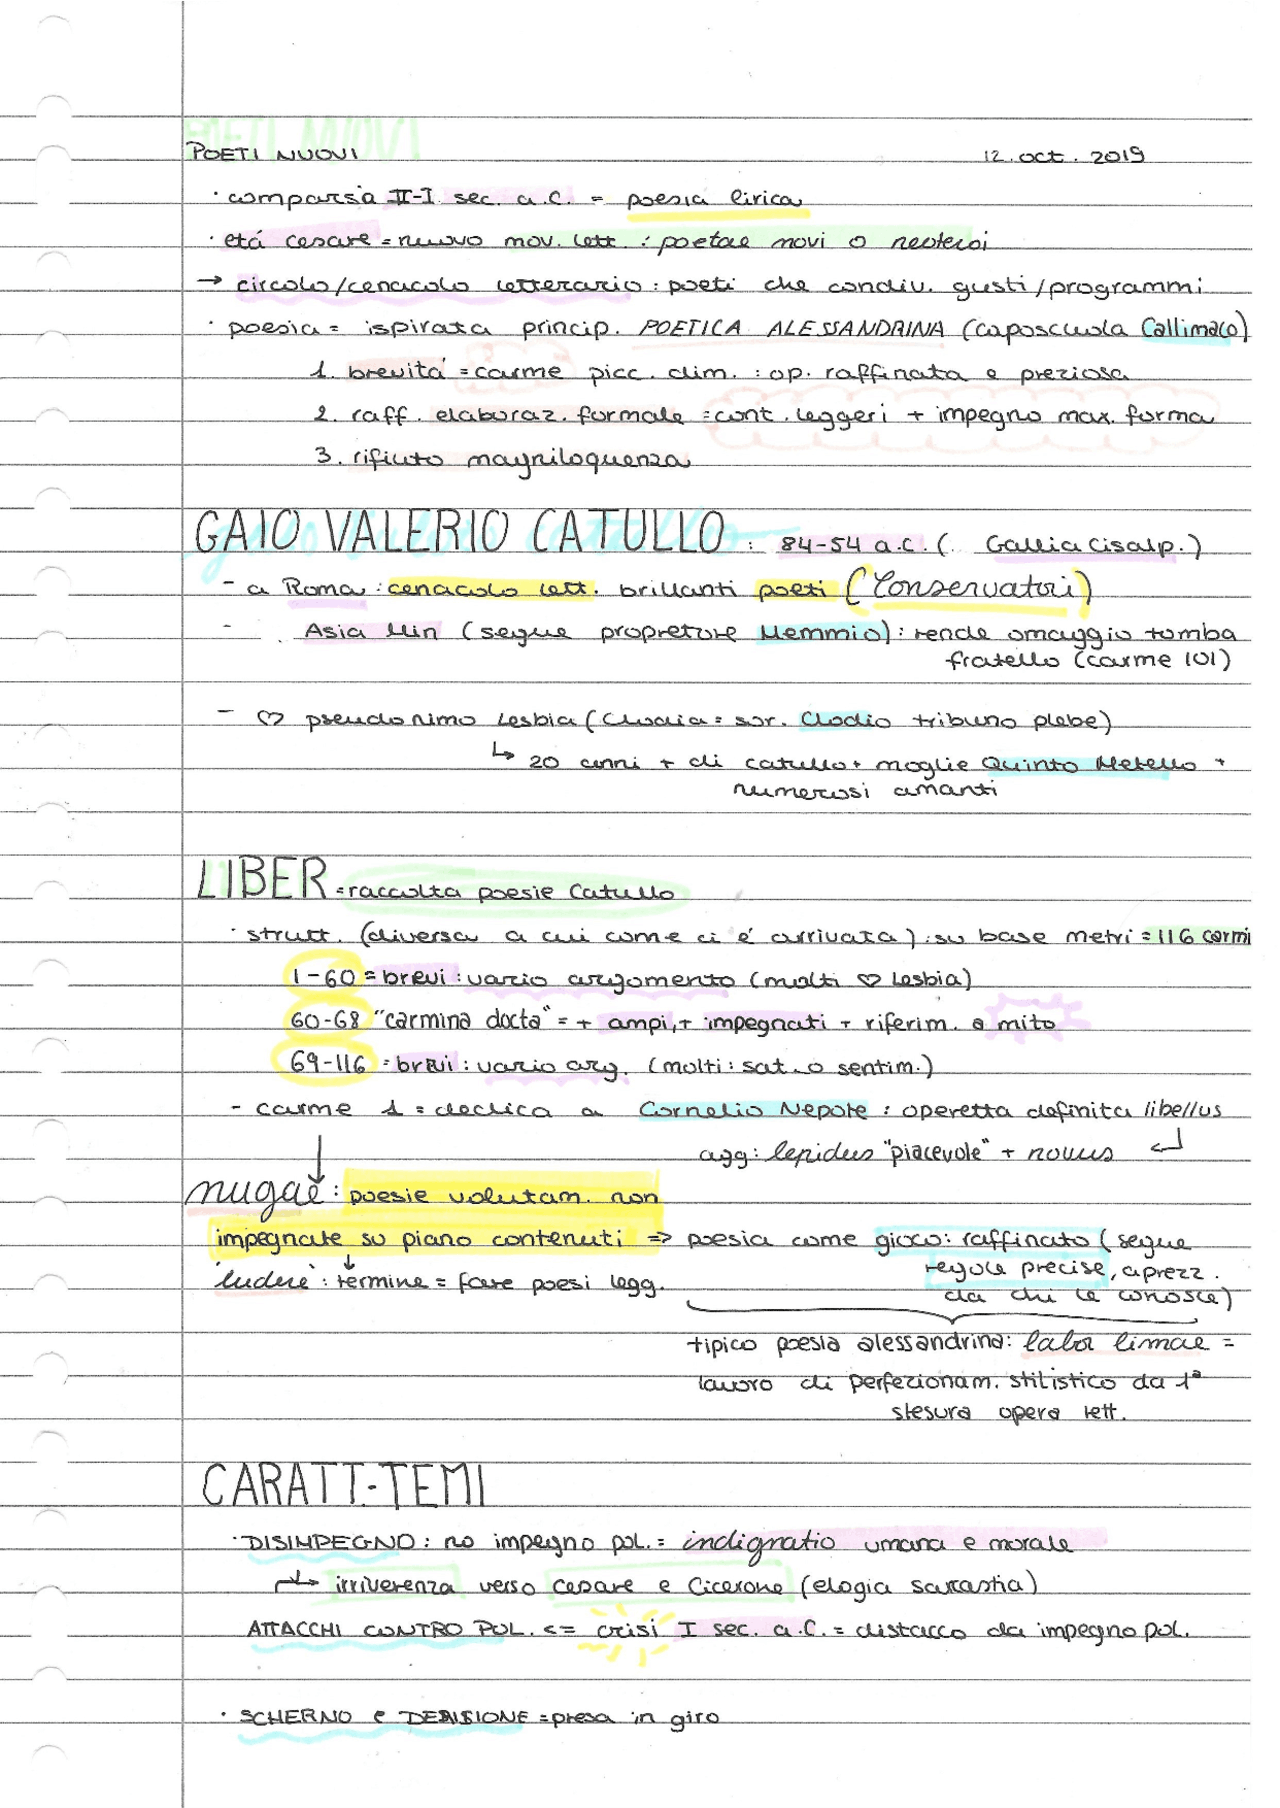 POETI NUOVI 12.oct.2019
· comparsa II-I sec. a.C. = poesia lirica
· etá cesare = nuovo mov. lett. : poetae novi o neoteroi
→ circolo/cenacolo letterario : poeti che condiv. gusti/programmi
· poesia = ispirata princip. POETICA ALESSANDRINA (caposcuola Callimaco)
1. brevitá = carme picc. dim. : op. raffinata e preziosa
2. raff. elaboraz. formale = cont. leggeri + impegno max. forma
3. rifiuto magniloquenza
GAIO VALERIO CATULLO : 84-54 a.C. (. Gallia Cisalp.)
- a Roma : cenacolo lett. brillanti poeti (Conservatori)
- . Asia Min (segue propretore Memmio) : rende omaggio tomba
fratello (carme 101)
- ♡ pseudonimo Lesbia (Clodia = sor. Clodio tribuno plebe)
↳ 20 anni + di catullo + moglie Quinto Metello +
numerosi amanti
LIBER = raccolta poesie Catullo
· strutt. (diversa a cui come ci é arrivata) : su base metri = 116 carmi
1-60 = brevi : vario argomento (molti ♡ Lesbia)
60-68 "carmina docta" = + ampi, + impegnati + riferim. a mito
69-116 = brevi : vario arg. (molti : sat. o sentim.)
- carme 1 = dedica a Cornelio Nepote : operetta definita libellus
agg : lepidus "piacevole" + novus ↵
nugae : poesie volutam. non
impegnate su piano contenuti => poesia come gioco : raffinato (segue
regole precise, aprezz.
'ludere' : termine = fare poesi legg.
da chi le conosce)
tipico poesia alessandrina : labor limae =
lavoro di perfezionam. stilistico da 1ª
stesura opera lett.
CARATT.-TEMI
· DISIMPEGNO : no impegno pol. = indignatio umana e morale
↳ irriverenza verso Cesare e Cicerone (elogia sarcastia)
ATTACCHI CONTRO POL. <= crisi I sec. a.C. = distacco da impegno pol.
· SCHERNO e DERISIONE = presa in giro